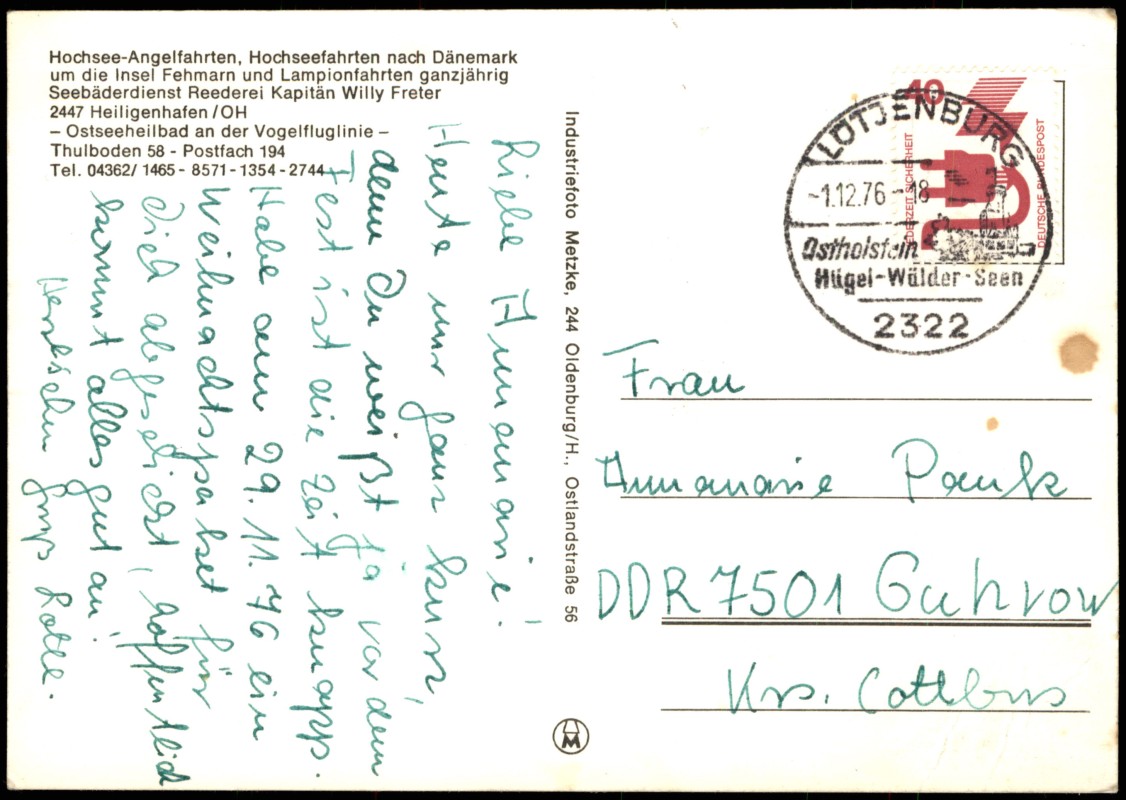 Hochsee-Angelfahrten, Hochseefahrten nach Dänemark
um die Insel Fehmarn und Lampionfahrten ganzjährig
Seebäderdienst Reederei Kapitän Willy Freter
2447 Heiligenhafen/OH
– Ostseeheilbad an der Vogelfluglinie –
Thulboden 58 - Postfach 194
Tel. 04362/ 1465 - 8571 - 1354 - 2744
Liebe Annemarie!
Heute nur ganz kurz,
denn Du weißt ja vor dem
Fest ist die Zeit knapp.
Habe am 29.11.76 ein
Weihnachtspaket für
Dich abgeschickt, hoffentlich
kommt alles gut an.
Herzlichen Gruß Lotte.
Industriefoto Metzke, 244 Oldenburg/H., Ostlandstraße 56
M
40
JEDERZEIT SICHERHEIT
DEUTSCHE BUNDESPOST
LÜTJENBURG
-1.12.76-18
Ostholstein
Hügel-Wälder-Seen
2322
Frau
Annemarie
DDR 7501 Guhrow
Krs. Cottbus